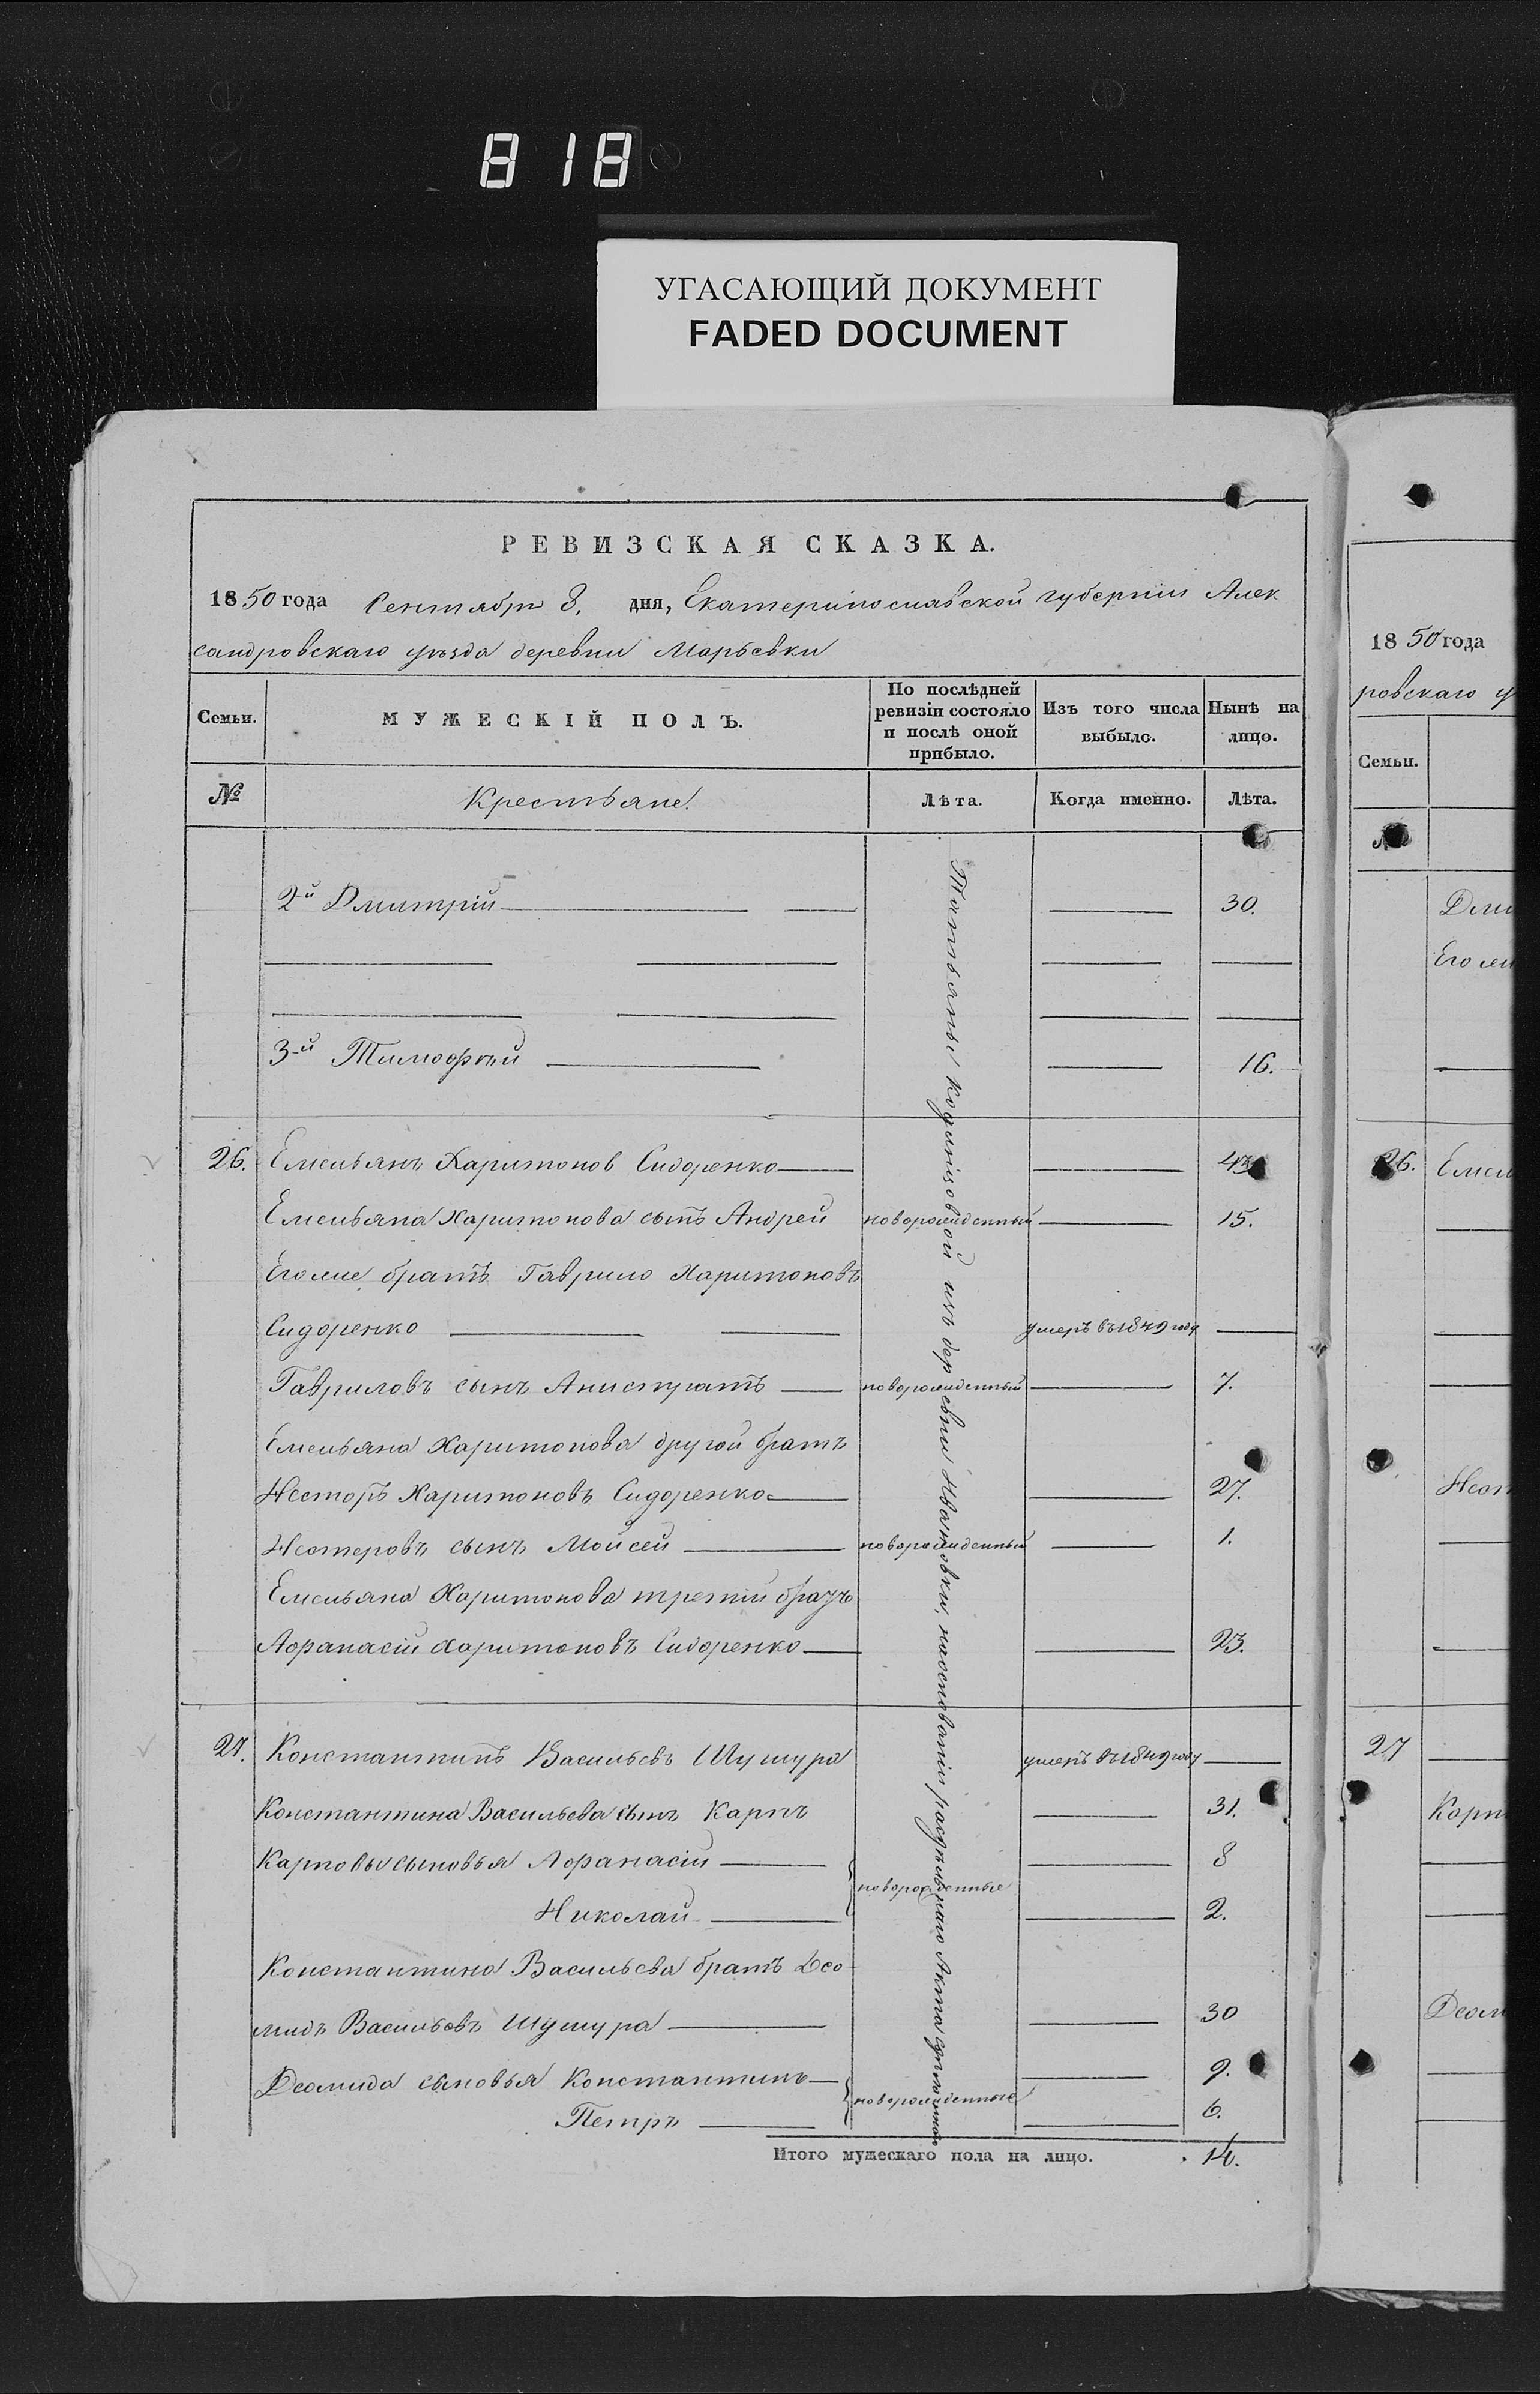 818
УГАСАЮЩИЙ ДОКУМЕНТ
FADED DOCUMENT
РЕВИЗСКАЯ СКАЗКА.
1850 года Сентября 8. дня, Екатеринославской губернии Алек
сандровскаго уѣзда деревни Марьевки
Семьи. МУЖЕСКІЙ ПОЛЪ. По послѣдней ревизіи состояло и послѣ оной прибыло. Изъ того числа выбыло. Нынѣ на лицо.
№ Крестьяне. Лѣта. Когда именно. Лѣта.
2й Дмитрій 30.
3-й Тимофѣй 16.
26. Емельянъ Харитоновъ Сидоренко 43
Емельяна Харитонова сынъ Андрей новорожденный 15.
Его же братъ Гаврило Харитоновъ
Сидоренко умеръ въ 1849 году
Гавриловъ сынъ Анистратъ новорожденный 7.
Емельяна Харитонова другой братъ
Несторъ Харитоновъ Сидоренко 27.
Нестеровъ сынъ Мойсей новорожденный 1.
Емельяна Харитонова третій братъ
Афанасій Харитоновъ Сидоренко 23.
27. Константинъ Васильевъ Шушура умеръ въ 1849 году
Константина Васильева сынъ Карпъ 31.
Карповы сыновья Афанасій 8
новорожденные
Николай 2.
Константина Васильева братъ Део
мидъ Васильевъ Шушура 30
Деомида сыновья Константинъ 9.
новорожденные
Петръ 6.
Итого мужескаго пола на лицо. 14.
Татьяны из деревни Ивановки, на основаніи раздѣльнаго Акта
1850 года
ровскаго у
Семьи.
№
Дми
Его же
26. Емел
Нест
27
Карп
Деом